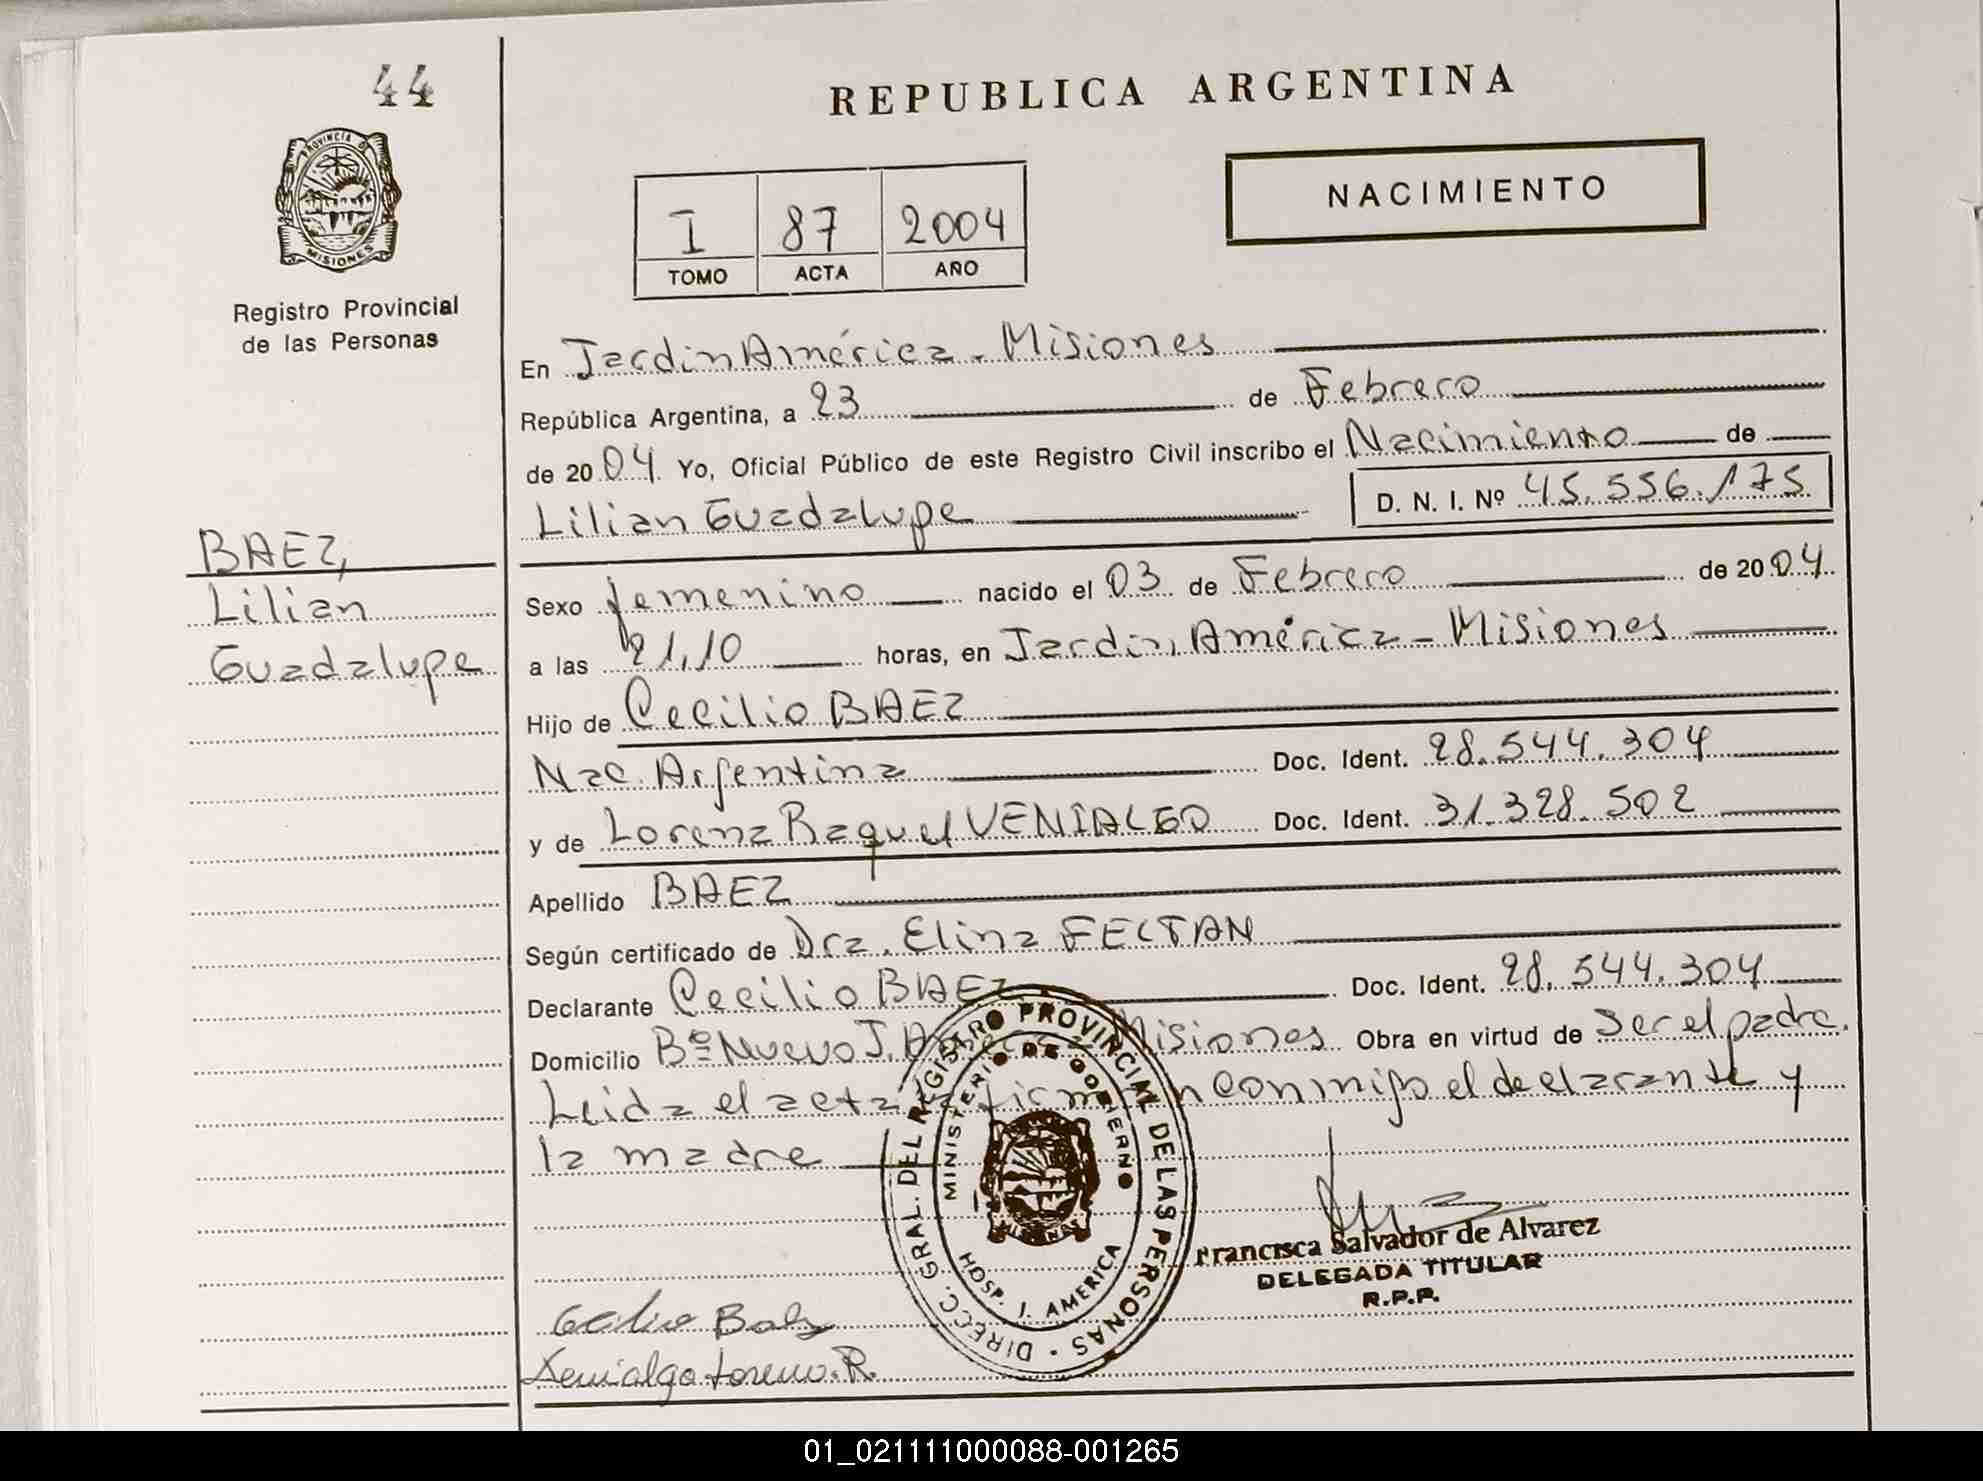 44
REPUBLICA ARGENTINA
PROVINCIA D
MISIONES
NACIMIENTO
I 87 2004
TOMO ACTA AÑO
Registro Provincial
de las Personas
En Jardin América - Misiones
República Argentina, a 23 de Febrero
de 2004 Yo, Oficial Público de este Registro Civil inscribo el Nacimiento de
Lilian Guadalupe D. N. I. Nº 45.556.175
BAEZ,
Lilian
Guadalupe
Sexo femenino nacido el 03 de Febrero de 2004
a las 21,10 horas, en Jardin América - Misiones
Hijo de Cecilio BAEZ
Nac. Argentina Doc. Ident. 28.544.304
y de Lorena Raquel VENIALGO Doc. Ident. 31.328.502
Apellido BAEZ
Según certificado de Dra. Elina
Declarante Cecilio BAEZ Doc. Ident. 28.544.304
Domicilio Bº Nuevo J. Misiones Obra en virtud de ser el padre.
Leida el acta conmigo el declarante y
la madre
DIRECC. GRAL. DEL REGISTRO PROVINCIAL DE LAS PERSONAS
MINISTERIO DE GOBIERNO
MISIONES
HOSP. J. AMERICA
Francisca Salvador de Alvarez
DELEGADA TITULAR
R.P.P.
Cecilio Baez
Venialgo Lorena R.
01_021111000088-001265